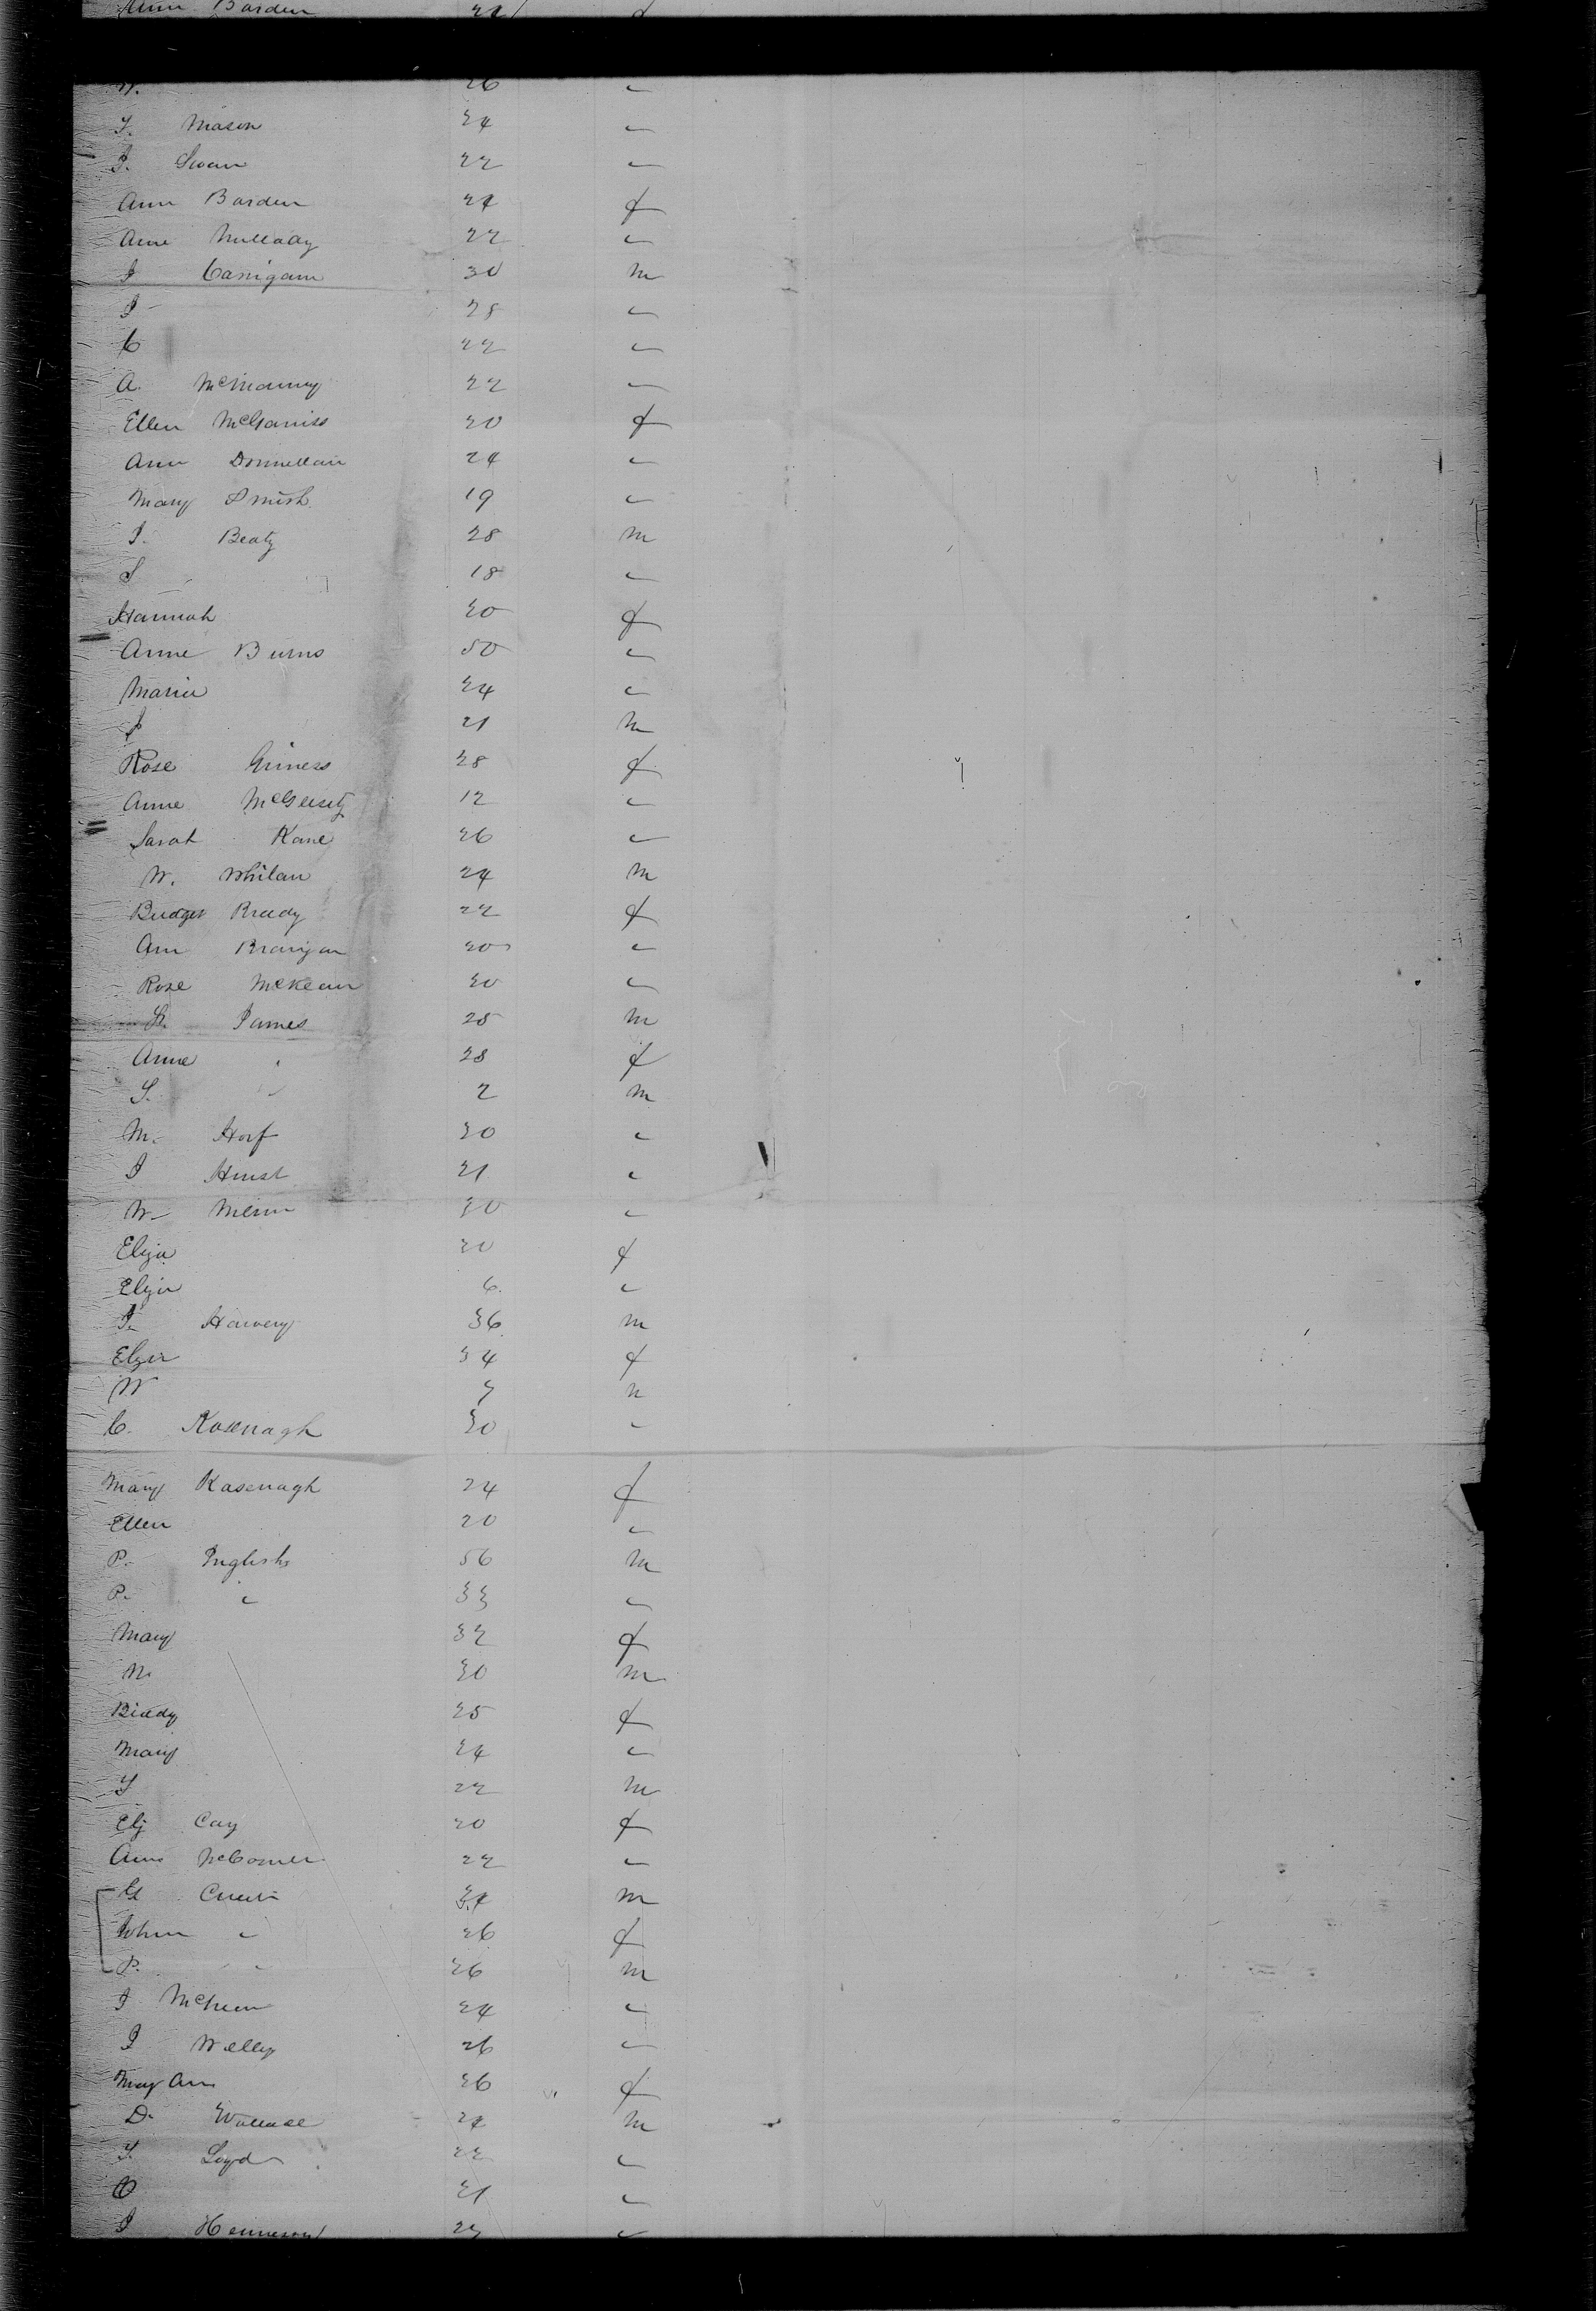 Ann Barden 24 f
W. 26 "
T. Mason 24 "
J. Swan 22 "
Ann Barden 24 f
Anne Mullady 22 "
J Carrigan 30 m
J 28 "
C 22 "
A. 22 "
Ellen McGanniss 20 f
Ann Donnellan 24 "
Mary Smith 19 "
J. Beaty 28 m
S 18 "
Hannah 20 f
Anne Burns 50 "
Maria 24 "
J 21 m
Rose Griness 28 f
Anne 12 "
Sarah Kane 26 "
W. Whilan 24 m
Bridget Brady 22 f
Ann Branigan 20 "
Rose McKeon 20 "
H. James 28 m
Anne " 28 f
S. " 2 m
M. Horf 30 "
J Hurst 21 "
W. 30 "
Eliza 20 f
Eliza 6 "
J. Harvey 36 m
Eliza 34 f
W 7 m
C. Kavenagh 30 "
Mary Kavenagh 24 f
Ellen 20 "
P. Inglish 56 m
P. " 33 "
Mary 32 f
M. 30 m
Biddy 25 f
Mary 24 "
T 22 m
Elz Cay 20 f
Ann 22 "
m
" 26 f
P. " 26 m
J 24 "
J Welly 26 "
Mary Ann 26 f
D. Wallace 24 m
T. Loyd 22 "
O 21 "
J Hennesey "